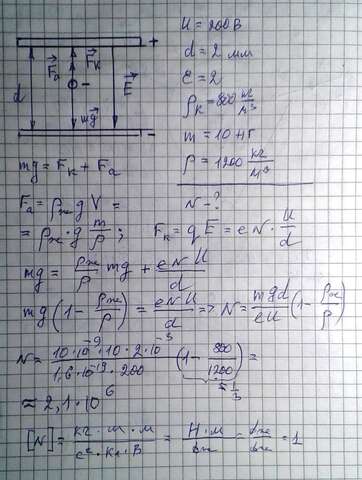 U = 200 В
d = 2 мм
ε = 2
ρк = 800 кг/м³
m = 10 нг
ρ = 1200 кг/м³
N - ?
+
Fк
Fa
mg
E
d
-
mg = Fк + Fa
Fa = ρж g V =
= ρж · g · m/ρ ;
Fк = qE = eN · U/d
mg = ρж/ρ · mg + eNU/d
mg (1 - ρж/ρ) = eNU/d => N = mgd/eU (1 - ρж/ρ)
N = 10·10⁻⁹·10·2·10⁻³/1,6·10⁻¹⁹·200 (1 - 800/1200) =
≈ 1/3
≈ 2,1·10⁶
[N] = кг·м·м/с²·Кл·В = Н·м/Дж = Дж/Дж = 1